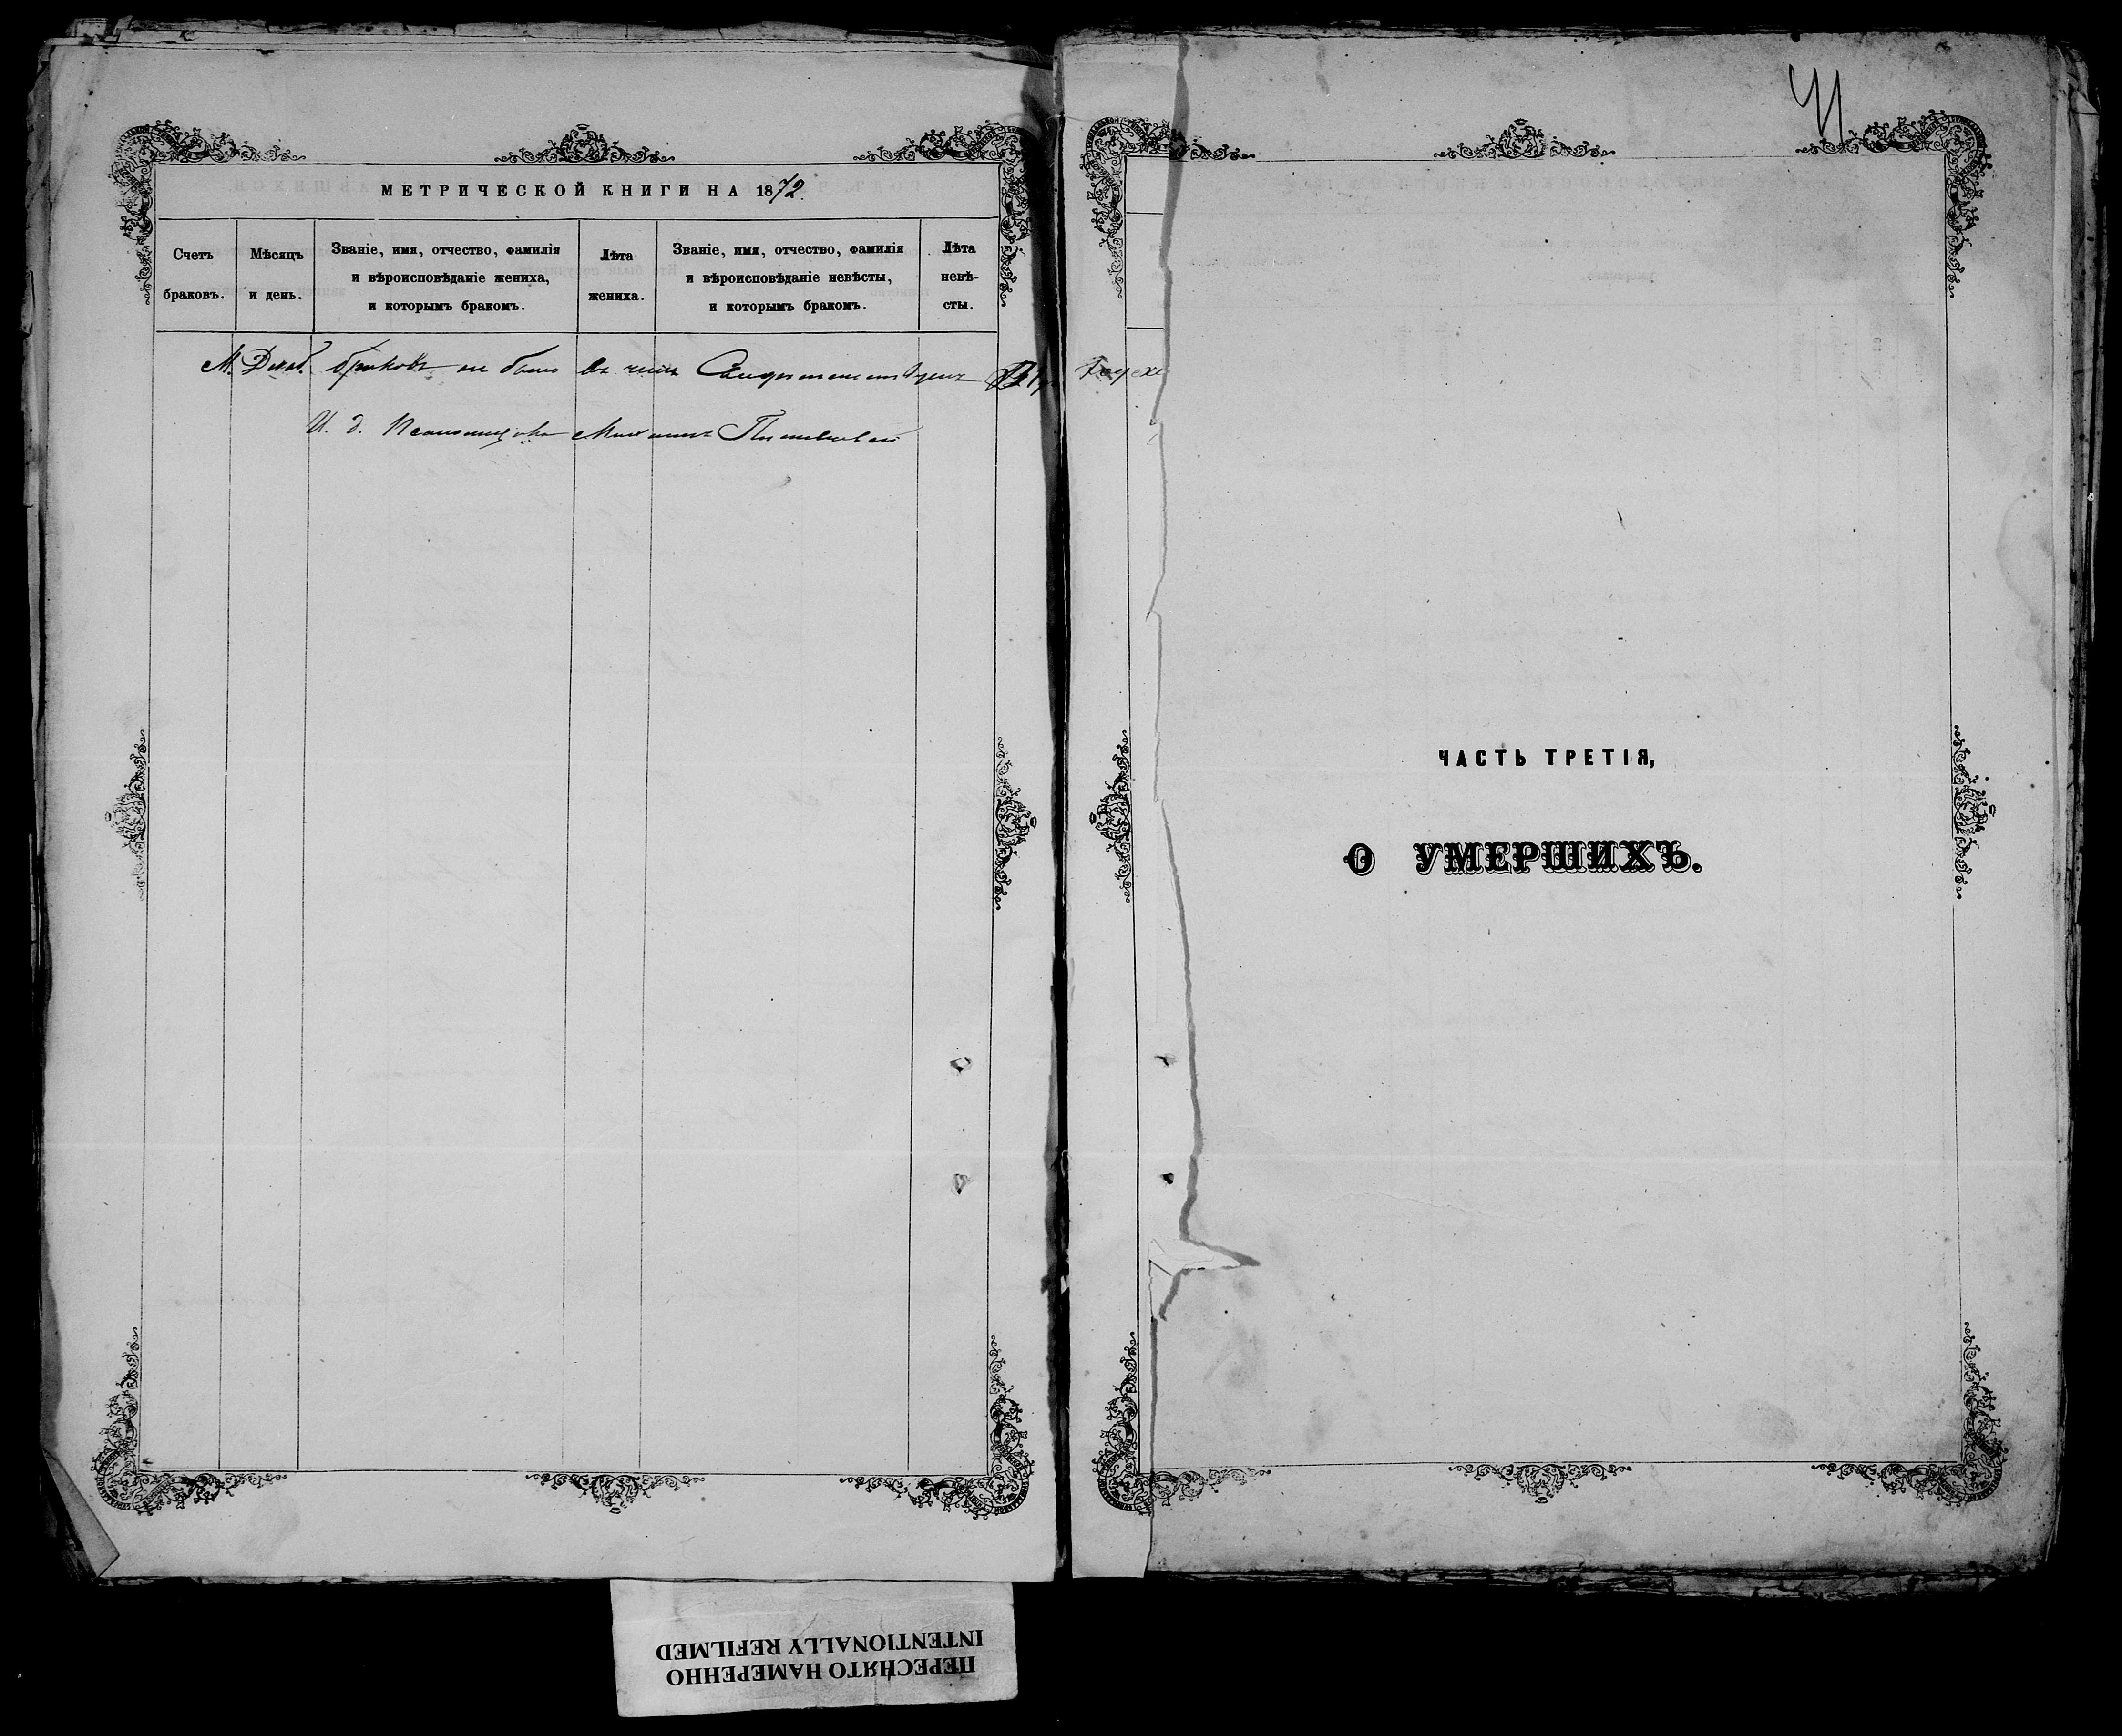 МЕТРИЧЕСКОЙ КНИГИ НА 1872.
Счетъ
браковъ.
Мѣсяцъ
и день.
Званіе, имя, отчество, фамилія
и вѣроисповѣданіе жениха,
и которымъ бракомъ.
Лѣта
жениха.
Званіе, имя, отчество, фамилія
и вѣроисповѣданіе невѣсты,
и которымъ бракомъ.
Лѣта
невѣ-
сты.
М. Декаб. браковъ не было въ чемъ
И. д. Псаломщика Михаилъ
41
ЧАСТЬ ТРЕТІЯ,
О УМЕРШИХЪ.
ПЕРЕСНЯТО НАМЕРЕННО
INTENTIONALLY REFILMED